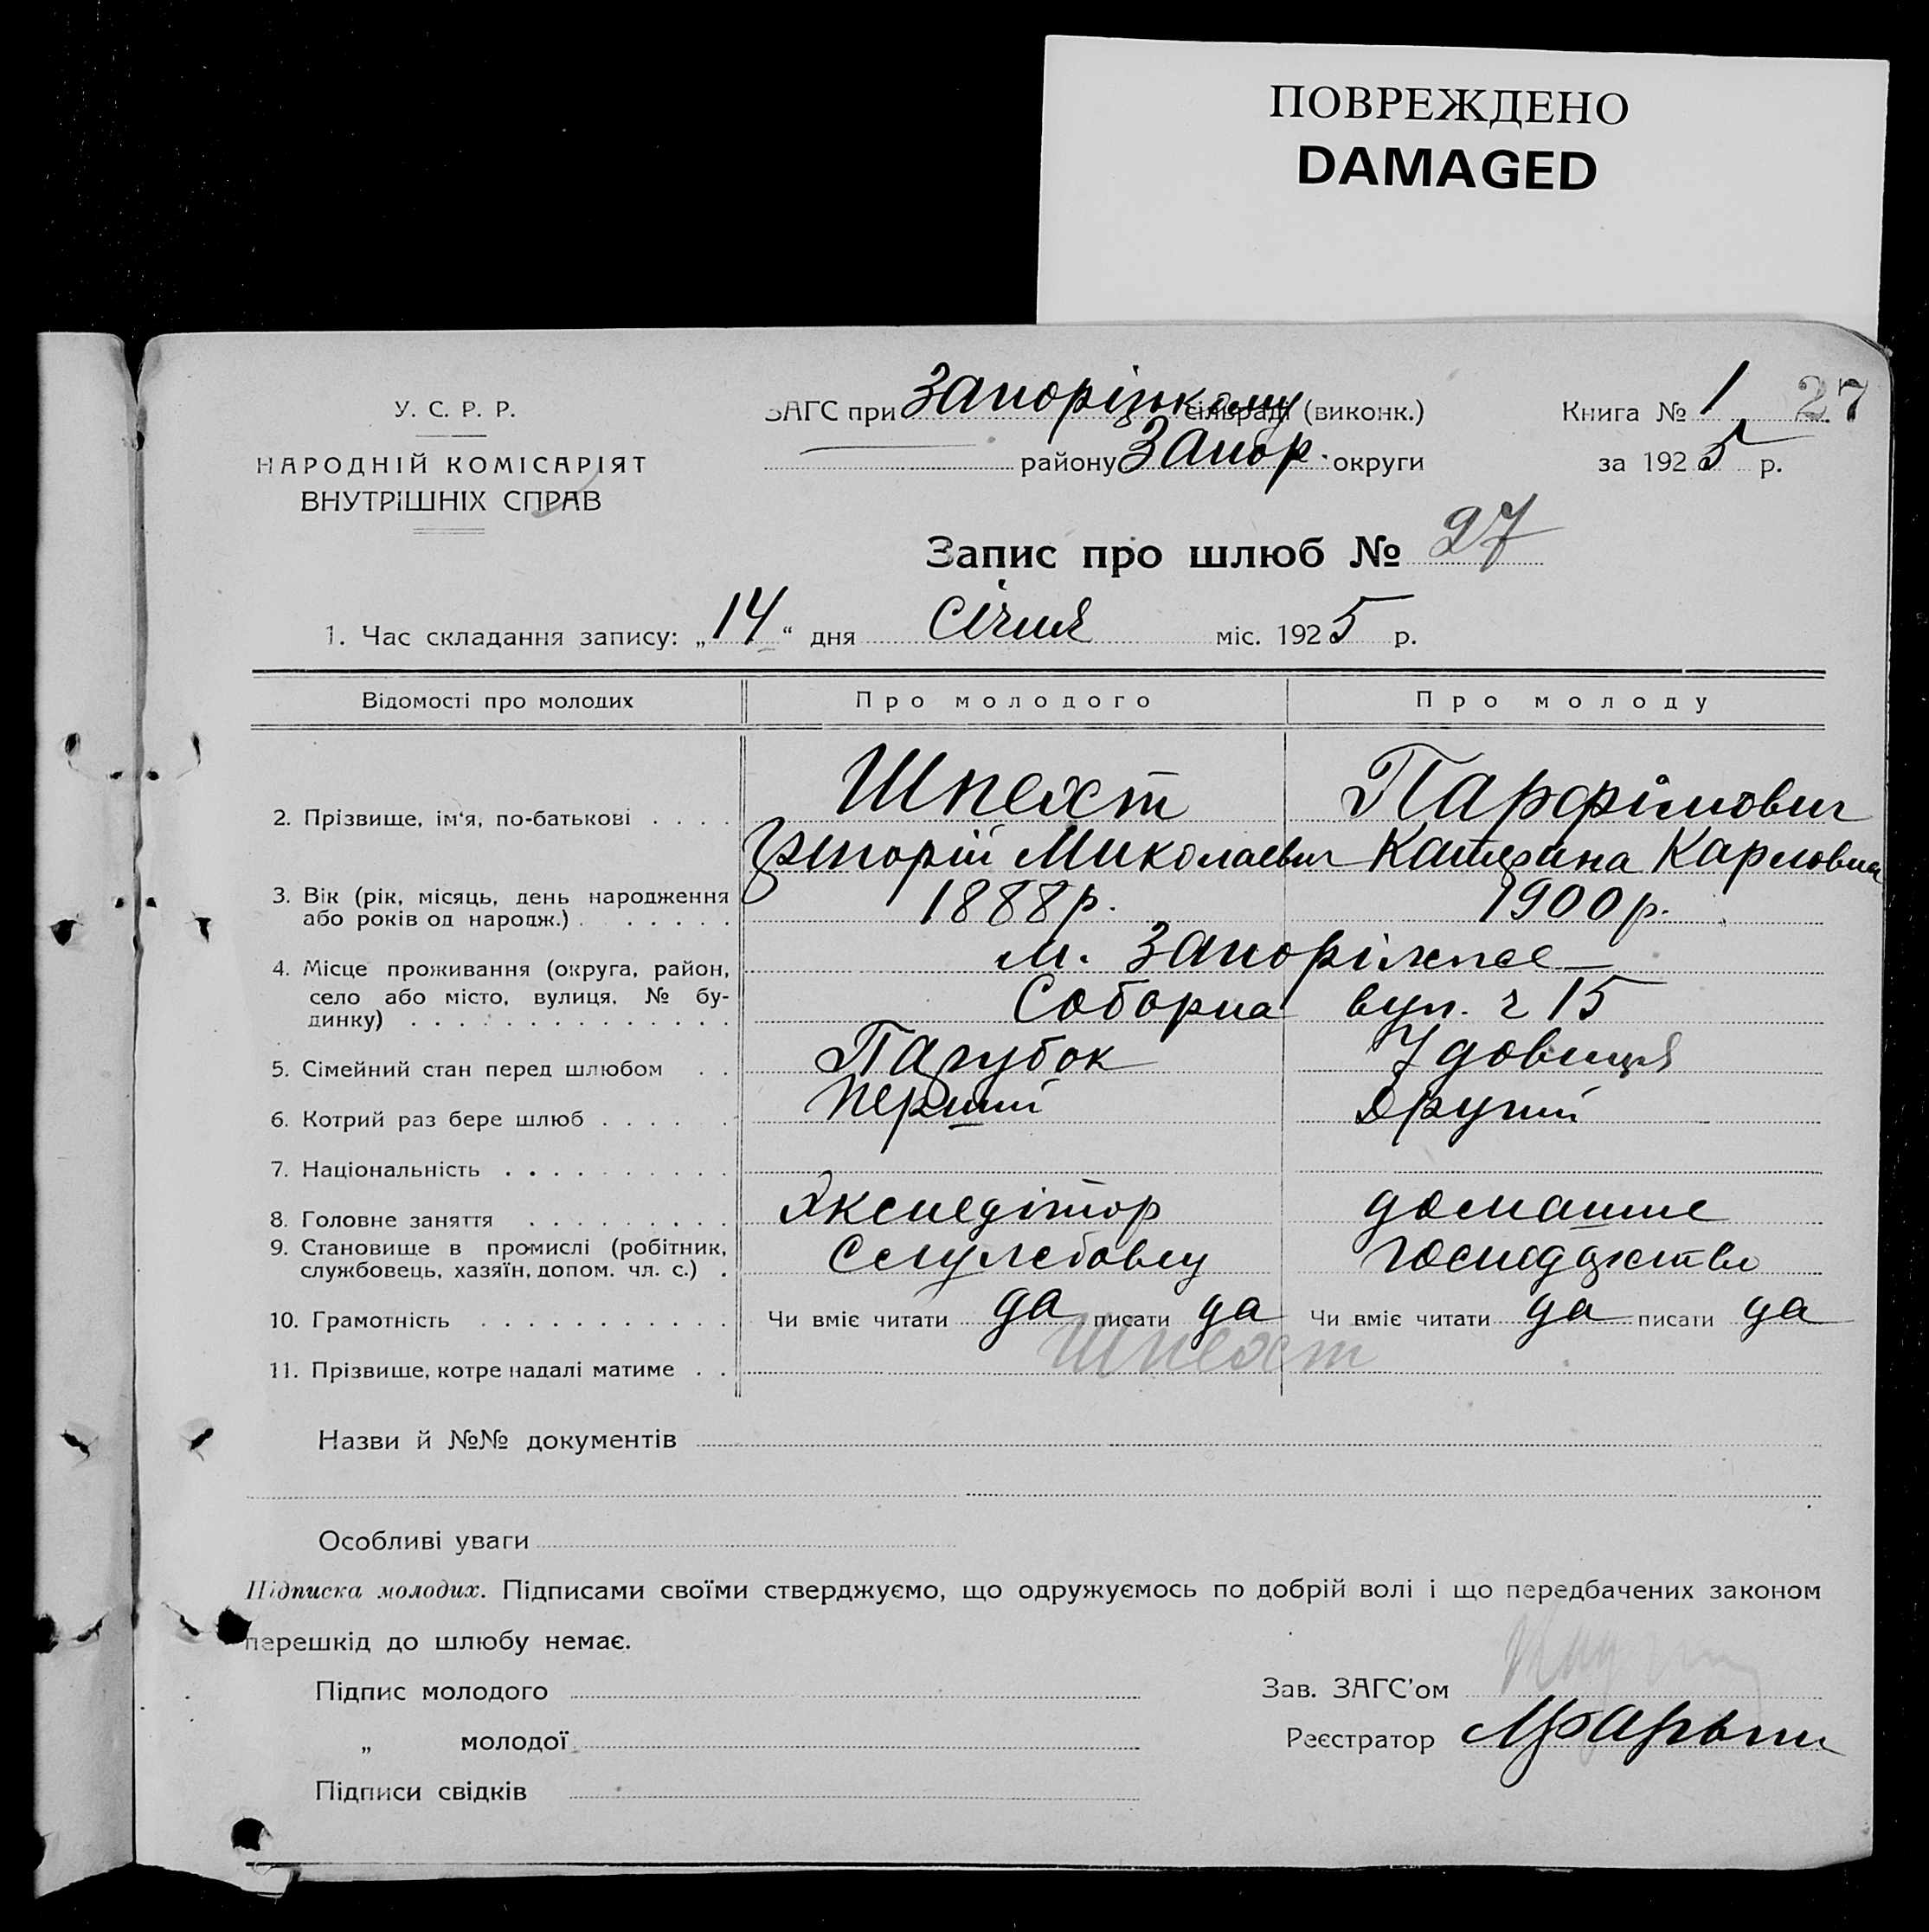 ПОВРЕЖДЕНО
DAMAGED
У. С. Р. Р.
НАРОДНІЙ КОМІСАРІЯТ
ВНУТРІШНІХ СПРАВ
ЗАГС при Запоріпкому сільраді (виконк.)
району Запор. округи
Книга № 1 27
за 1925 р.
Запис про шлюб № 27
1. Час складання запису: „14“ дня Січня міс. 1925 р.
Відомості про молодих Про молодого Про молоду
2. Прізвище, ім'я, по-батькові . . . . Шпехт Парфімович
Григорій Миколаевич Катерина Карловна
3. Вік (рік, місяць, день народження
або років од народж.) . . . . . . 1888р. 1900р.
4. Місце проживання (округа, район, м. Запоріжже
село або місто, вулиця, № бу-
динку) . . . . . . . . . . . . . . Соборна вул. ч 15
5. Сімейний стан перед шлюбом . . Парубок Удовиця
6. Котрий раз бере шлюб . . . . . . Перший Другий
7. Національність . . . . . . . . . .
8. Головне заняття . . . . . . . . . Экспедітор домашне
9. Становище в промислі (робітник,
службовець, хазяїн, допом. чл. с.) . господарство
10. Грамотність . . . . . . . . . . . Чи вміє читати да писати да Чи вміє читати да писати да
11. Прізвище, котре надалі матиме . . Шпехт
Назви й №№ документів
Особливі уваги
Підписка молодих. Підписами своїми стверджуємо, що одружуємось по добрій волі і що передбачених законом
перешкід до шлюбу немає.
Підпис молодого
Зав. ЗАГС'ом
„ молодої
Реєстратор
Підписи свідків